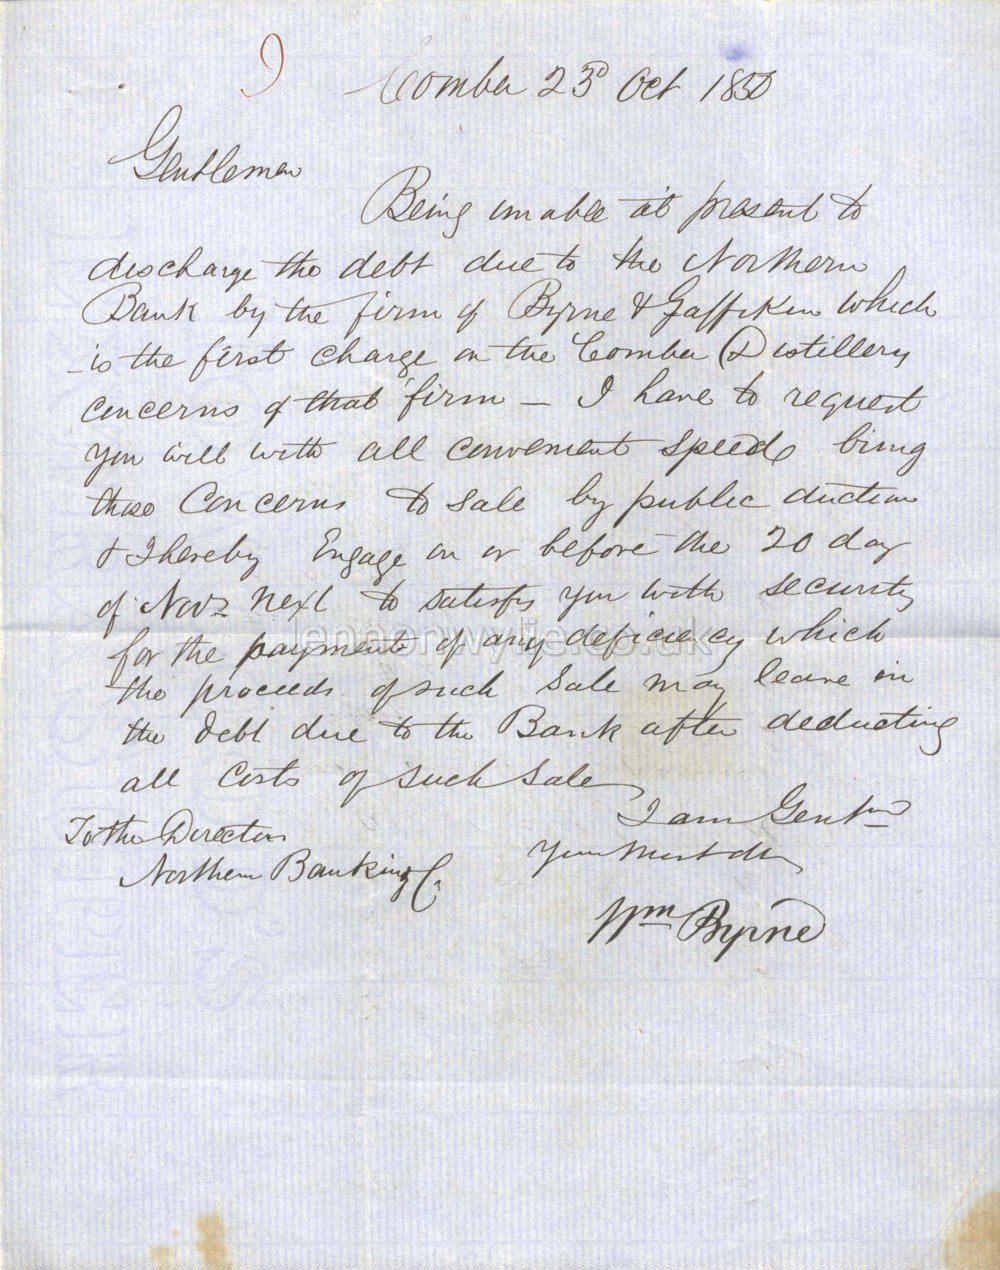 Comber 23d Oct 1850
Gentlemen
Being unable at present to
discharge the debt due to the Northern
Bank by the firm of Byrne & Gaffikin which
is the first charge on the Comber Distillery
concerns of that firm — I have to request
you will with all convenient speed bring
those Concerns to sale by public auction
& I hereby Engage on or before the 20 day
of Novr next to satisfy you with security
for the payment of any deficiency which
the proceeds of such Sale may leave in
the debt due to the Bank after deducting
all Costs of such Sale
I am Gentn
Your Most
To the Directors
Northern Banking Co
Wm Byrne
lennonwylie.co.uk